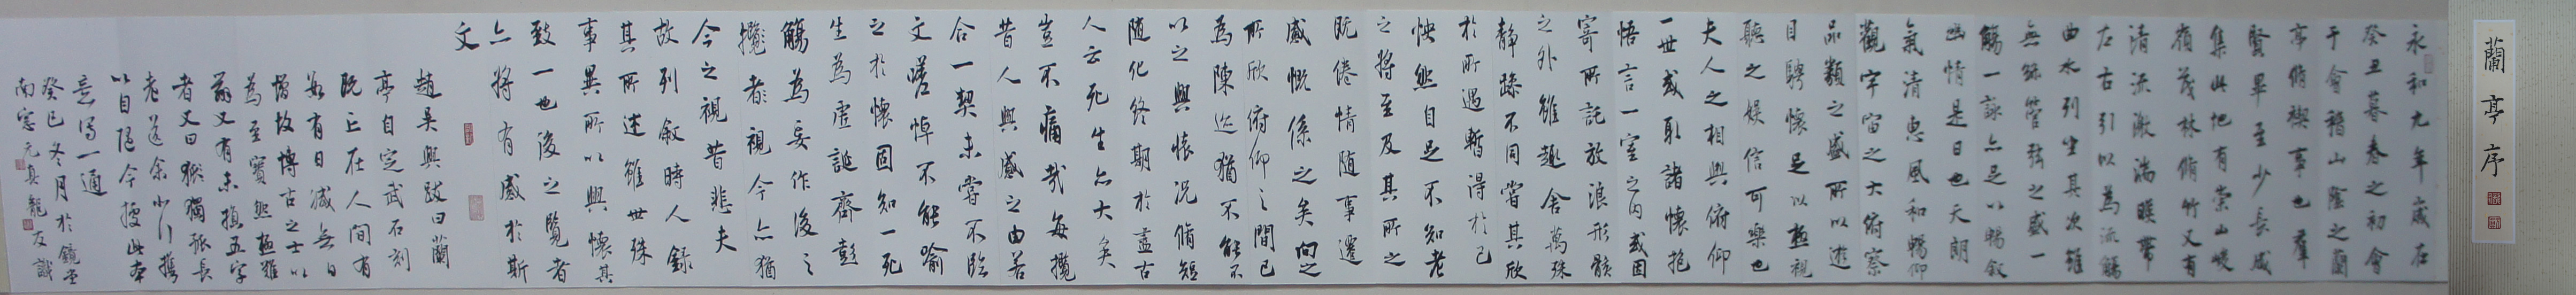 蘭亭序
永和九年歲在
癸丑暮春之初會
于會稽山陰之蘭
亭脩禊事也羣
賢畢至少長咸
集此地有崇山峻
嶺茂林脩竹又有
清流激湍暎帶
左右引以為流觴
曲水列坐其次雖
無絲管弦之盛一
觴一詠亦足以暢敘
幽情是日也天朗
氣清惠風和暢仰
觀宇宙之大俯察
品類之盛所以遊
目騁懷足以極視
聽之娛信可樂也
夫人之相與俯仰
一世或取諸懷抱
悟言一室之內或因
寄所託放浪形骸
之外雖趣舍萬殊
靜躁不同當其欣
於所遇暫得於己
怏然自足不知老
之將至及其所之
既倦情隨事遷
感慨係之矣向之
所欣俯仰之間已
為陳迹猶不能不
以之興懷況脩短
隨化終期於盡古
人云死生亦大矣
豈不痛哉每攬
昔人興感之由若
合一契未嘗不臨
文嗟悼不能喻
之於懷固知一死
生為虛誕齊彭
殤為妄作後之
攬者視今亦猶
今之視昔悲夫
故列敘時人錄
其所述雖世殊
事異所以興懷其
致一也後之覽者
亦將有感於斯
文
趙吳興跋曰蘭
亭自定武石刻
既亡在人間有
數有日減無日
增故博古之士以
為至寶然極難
辨又有未損五字
者又曰獨孤長
老送余北行攜
以自隨今摹此本
意寫一通
癸巳冬月於鏡堂
南窗元真龍友識